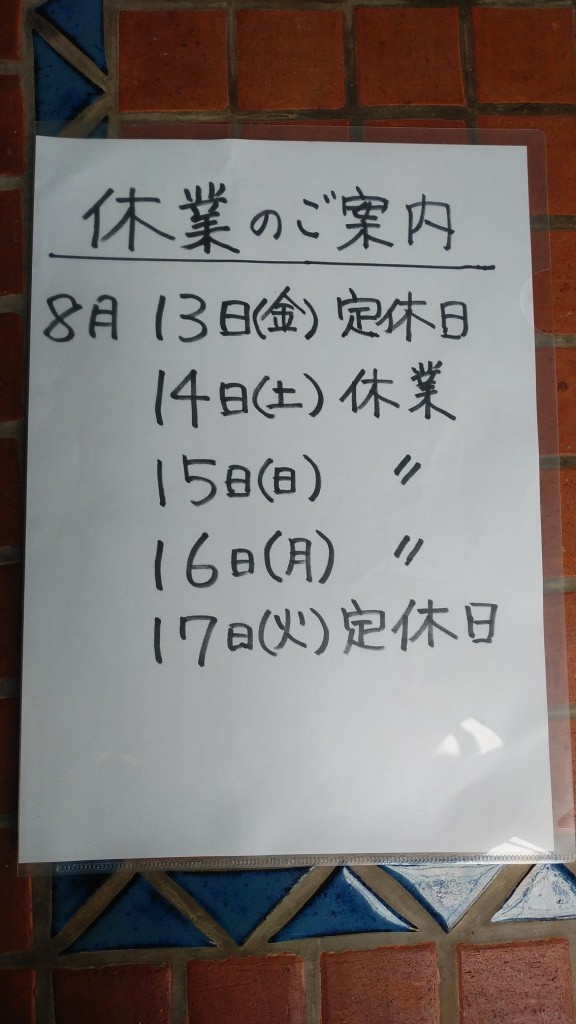 休業のご案内
8月 13日(金) 定休日
14日(土) 休業
15日(日) 〃
16日(月) 〃
17日(火) 定休日